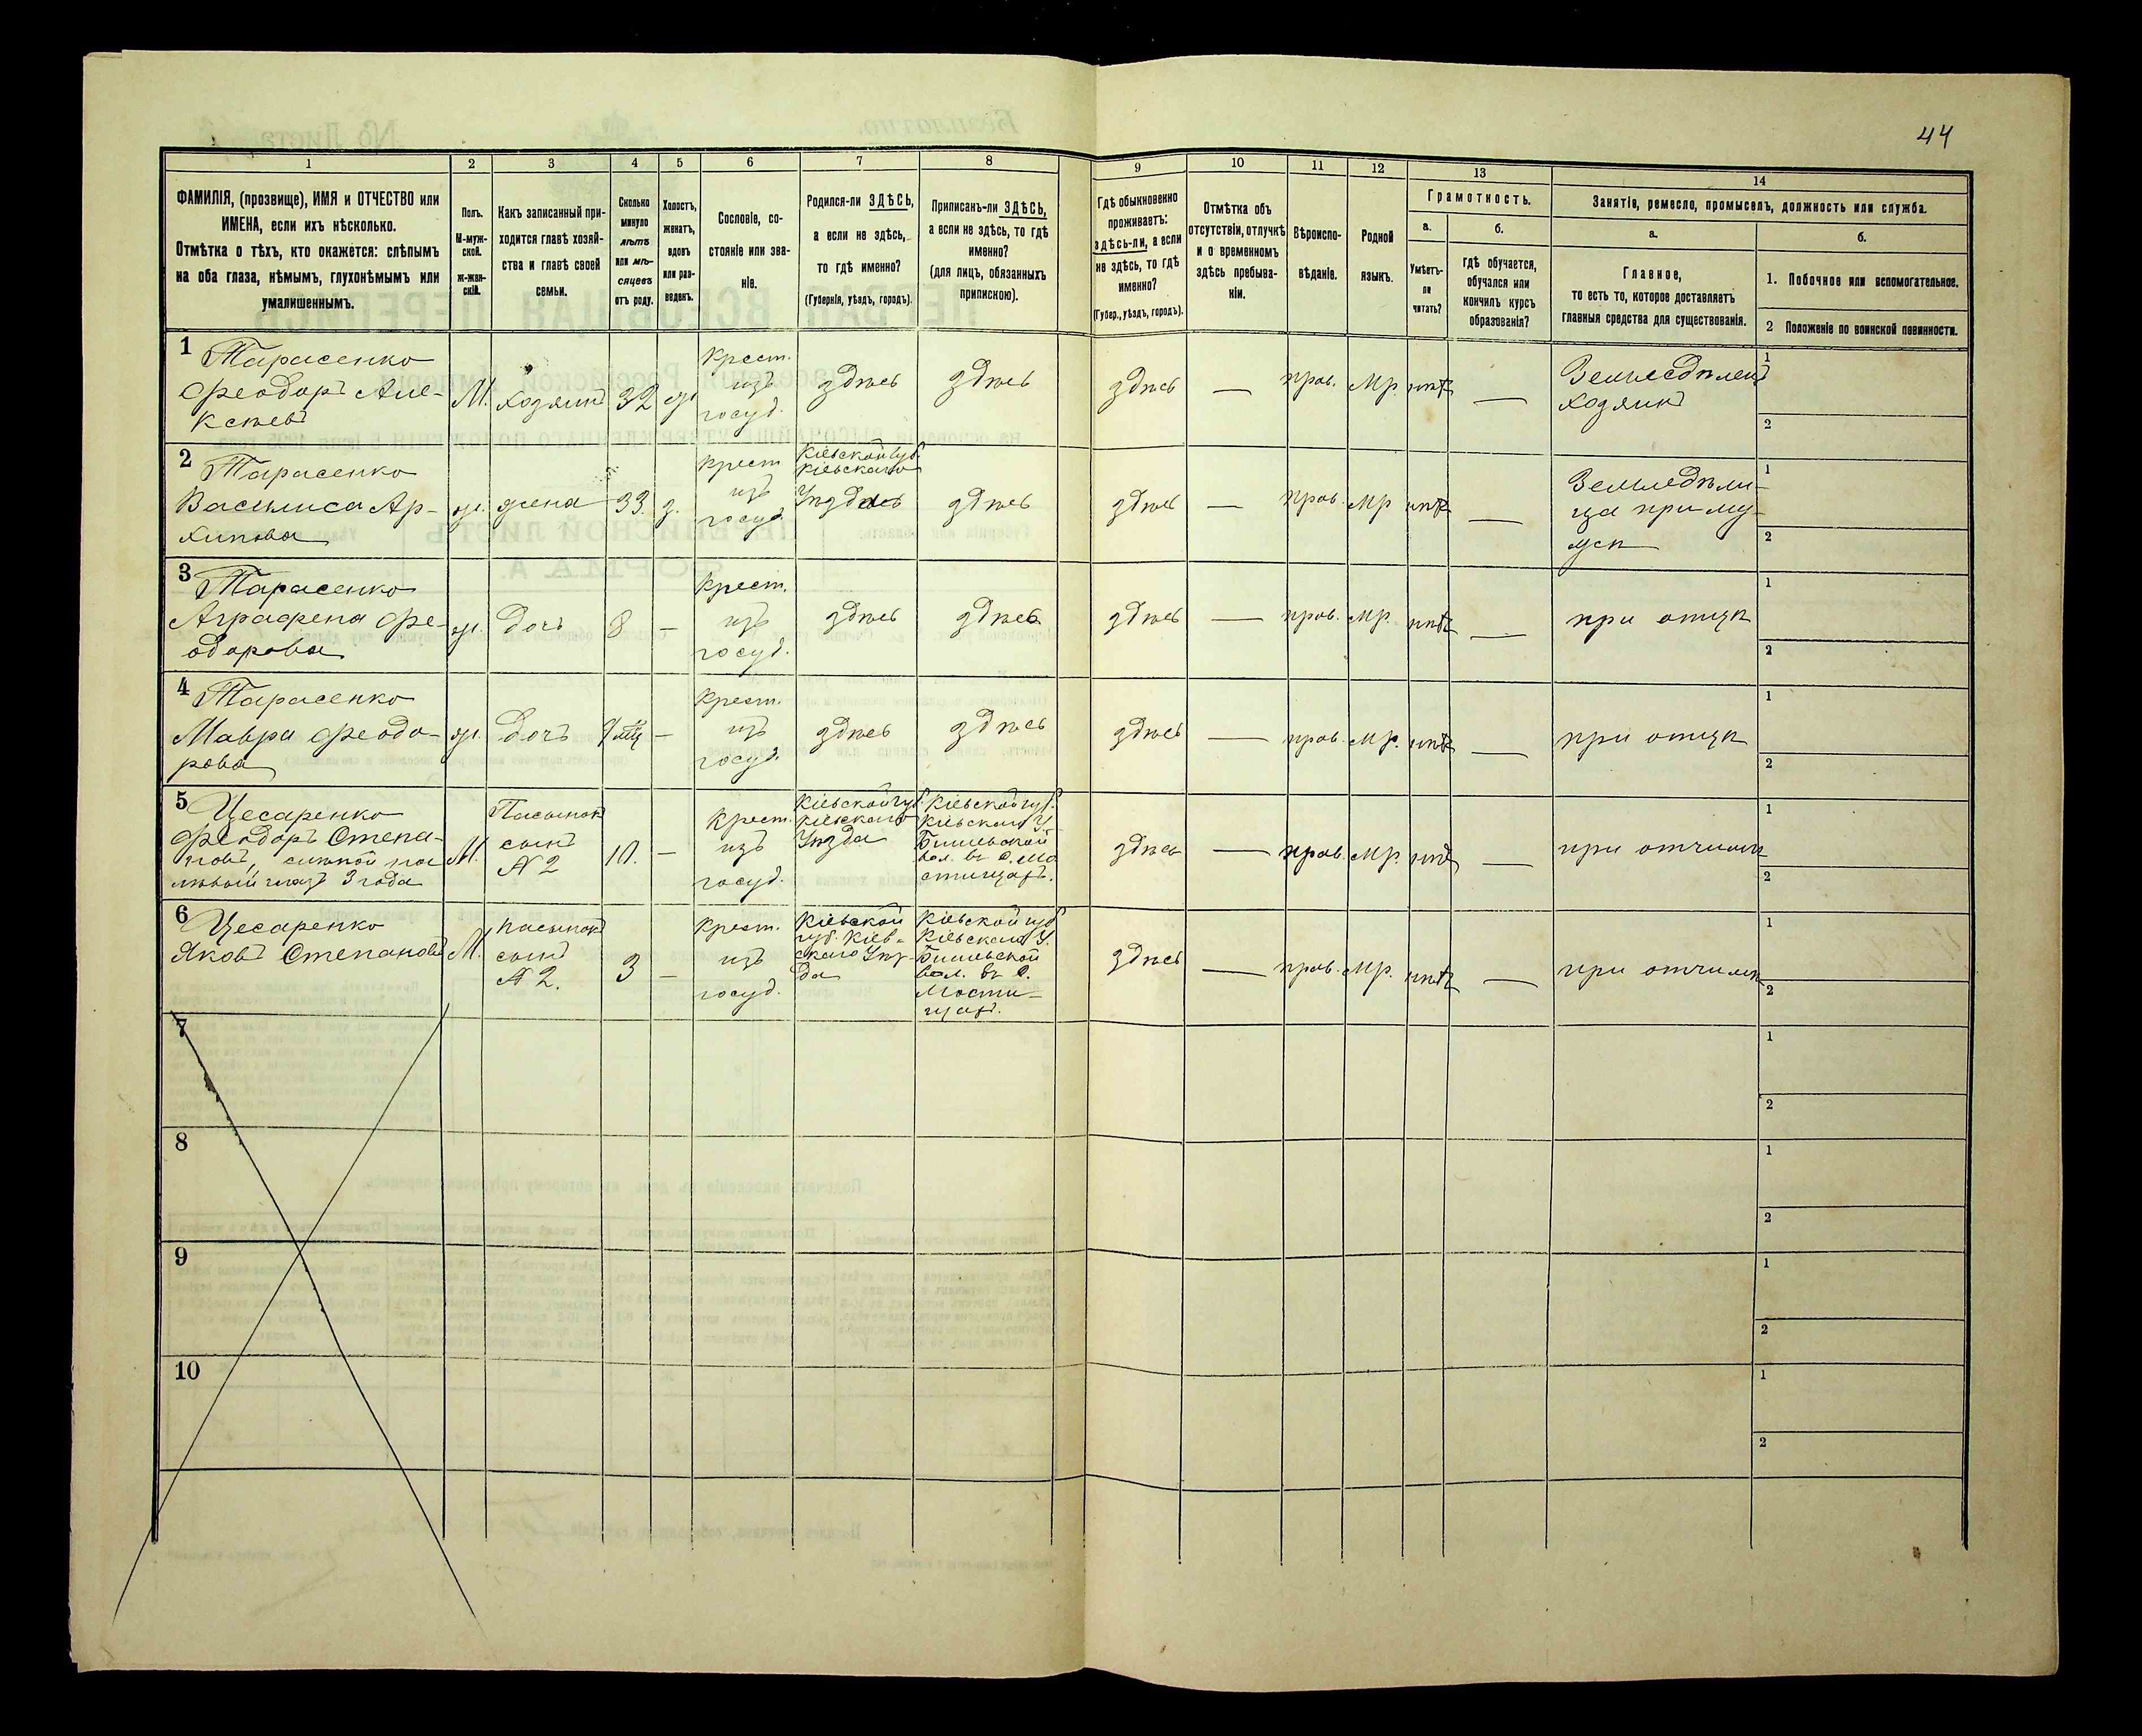 44
1 2 3 4 5 6 7 8 9 10 11 12 13 14
ФАМИЛІЯ, (прозвище), ИМЯ и ОТЧЕСТВО или
ИМЕНА, если ихъ нѣсколько.
Отмѣтка о тѣхъ, кто окажется: слѣпымъ
на оба глаза, нѣмымъ, глухонѣмымъ или
умалишеннымъ.
Полъ.
М-муж-
ской.
ж-жен-
скій.
Какъ записанный при-
ходится главѣ хозяй-
ства и главѣ своей
семьи.
Сколько
минуло
лѣтъ
или мѣ-
сяцевъ
отъ роду.
Холостъ,
женатъ,
вдовъ
или раз-
веденъ.
Сословіе, со-
стояніе или зва-
ніе.
Родился-ли ЗДѢСЬ,
а если не здѣсь,
то гдѣ именно?
(Губернія, уѣздъ, городъ).
Приписанъ-ли ЗДѢСЬ,
а если не здѣсь, то гдѣ
именно?
(для лицъ, обязанныхъ
припискою).
Гдѣ обыкновенно
проживаетъ:
здѣсь-ли, а если
не здѣсь, то гдѣ
именно?
(Губер., уѣздъ, городъ).
Отмѣтка объ
отсутствіи, отлучкѣ
и о временномъ
здѣсь пребыва-
ніи.
Вѣроиспо-
вѣданіе.
Родной
языкъ.
Грамотность.
а.
Умѣетъ-
ли
читать?
б.
гдѣ обучается,
обучался или
кончилъ курсъ
образованія?
Занятіе, ремесло, промыселъ, должность или служба.
а.
Главное,
то есть то, которое доставляетъ
главныя средства для существованія.
б.
1. Побочное или вспомогательное.
2 Положеніе по воинской повинности.
1
Тарасенко
Феодоръ Але-
ксѣевъ
М.
Хозяинъ
32
Крест.
изъ
госуд.
здѣсь
здѣсь
здѣсь
—
прав.
Мр.
нѣтъ
—
Земледѣлецъ
Хозяинъ
1
2
2
Тарасенко
Василиса Ар-
хипова
ж.
жена
33.
з.
крест
изъ
госуд.
Кіевской губ.
Кіевскаго
Уѣзда
здѣсь
здѣсь
—
прав.
Мр
нѣтъ
—
Земледѣли-
ца при му-
жѣ
1
2
3
Тарасенко
Аграфена Фе-
одорова
ж.
дочь
8
—
Крест.
изъ
госуд.
здѣсь
здѣсь
здѣсь
—
прав.
Мр.
нѣтъ
—
при отцѣ
1
2
4
Тарасенко
Мавра Феодо-
рова
ж.
дочь
—
Крест.
изъ
госуд.
здѣсь
здѣсь
здѣсь
—
прав.
Мр.
нѣтъ
—
при отцѣ
1
2
5
Цесаренко
Феодоръ Степа-
новъ,
лѣвый глазъ 3 года
М.
Пасынокъ
сынъ
№ 2
10.
—
Крест.
изъ
госуд.
Кіевской губ.
Кіевскаго
Уѣзда
Кіевской губ.
Кіевскаго У.
Бышевской
вол. въ с. Мо
стищахъ.
здѣсь
—
прав.
Мр.
нѣтъ
—
при отчимѣ
1
2
6
Цесаренко
Яковъ Степановъ
М.
пасынокъ
сынъ
№ 2.
3
—
Крест.
изъ
госуд.
Кіевской
губ. Кіев-
скаго Уѣз-
да
Кіевской губ.
Кіевскаго У.
Бышевской
вол. въ с.
Мости-
щахъ.
здѣсь
—
прав.
Мр.
нѣтъ
—
при отчимѣ
1
2
7
1
2
8
1
2
9
1
2
10
1
2